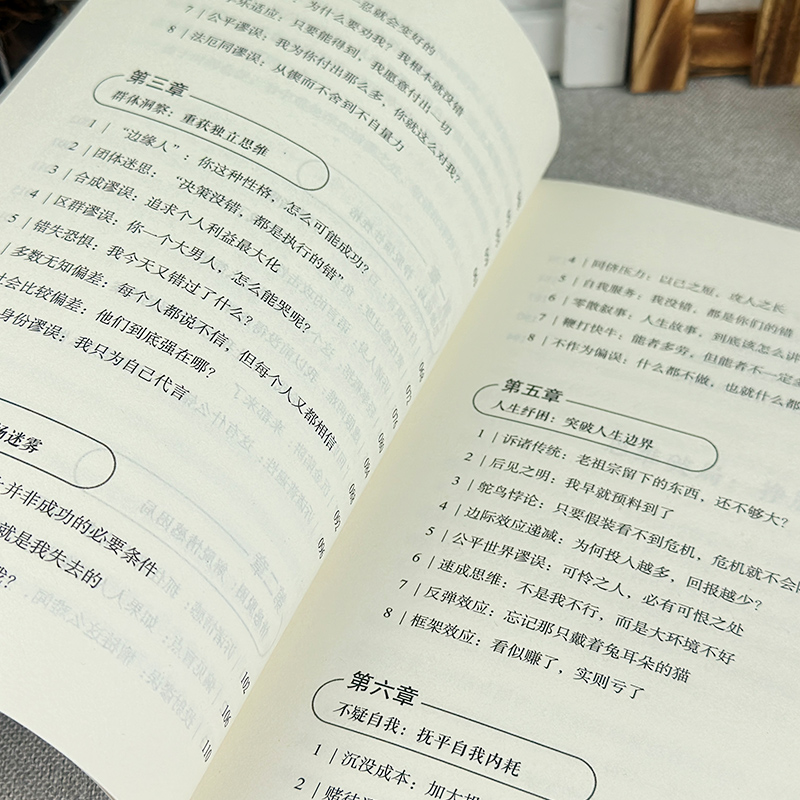 忍就会变好的
乐适应：为什么要劝我？我根本就没错
7 | 公平谬误：只要能得到，我愿意付出一切
8 | 法厄同谬误：我为你付出那么多，你就这么对我？
从懊而不舍到不自量力
第三章
群体洞察：重获独立思维
1 | “边缘人”：你这种性格，怎么可能成功？
2 | 团体迷思：“决策没错，都是执行的错”
3 | 合成谬误：追求个人利益最大化
4 | 区群谬误：你一个大男人，怎么能哭呢？
5 | 错失恐惧：我今天又错过了什么？
| 多数无知偏差：每个人都说不信，但每个人又都相信
社会比较偏差：他们到底强在哪？
身份谬误：我只为自己代言
迷雾
并非成功的必要条件
就是我失去的
我？
102
106
110
4 | 同侪压力：以己之短，攻人之长
5 | 自我服务：我没错，都是你们的错
6 | 零散叙事：人生故事，到底该怎么讲
7 | 鞭打快牛：能者多劳，但能者不一定多
8 | 不作为偏误：什么都不做，也就什么都
第五章
人生纾困：突破人生边界
1 | 诉诸传统：老祖宗留下的东西，还不够大？
2 | 后见之明：我早就预料到了
3 | 鸵鸟悖论：只要假装看不到危机，危机就不会
4 | 边际效应递减：为何投入越多，回报越少？
5 | 公平世界谬误：可怜之人，必有可恨之处
6 | 速成思维：不是我不行，而是大环境不好
7 | 反弹效应：忘记那只戴着兔耳朵的猫
8 | 框架效应：看似赚了，实则亏了
第六章
不疑自我：抚平自我内耗
1 | 沉没成本：加大
2 | 赌徒